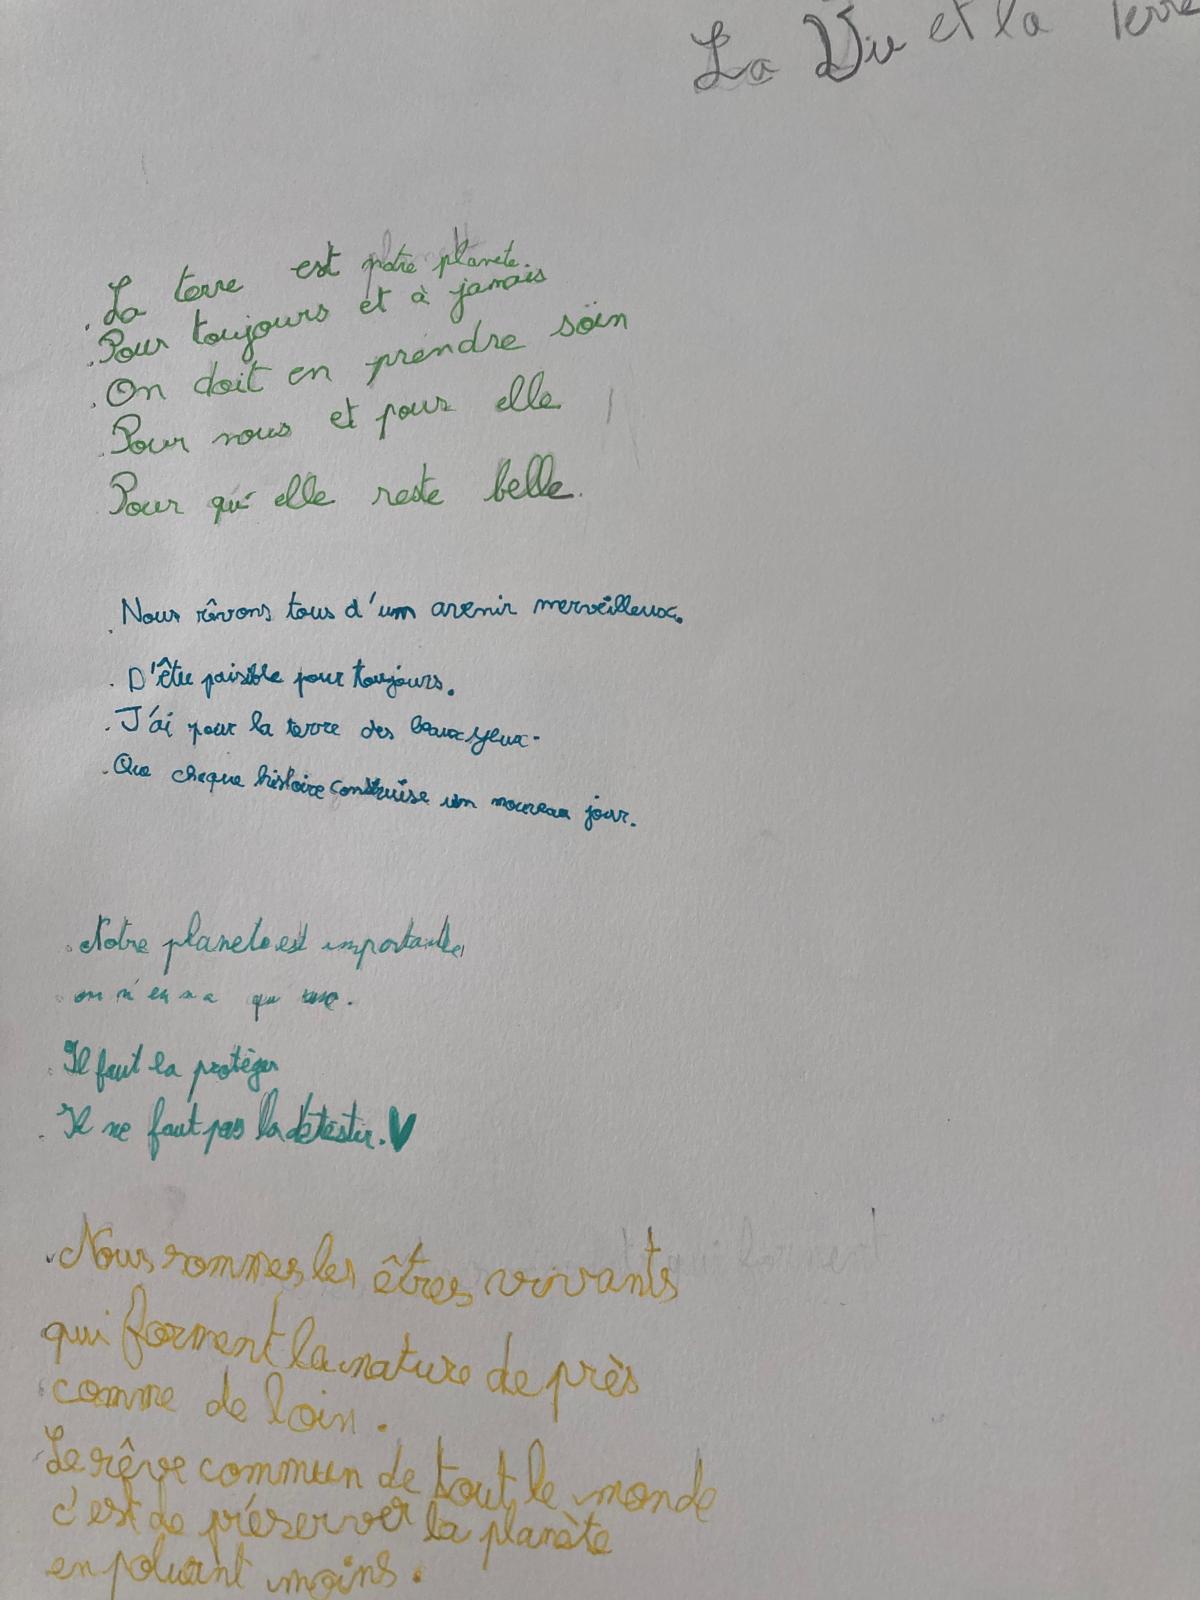 La Vie et la Terre
La terre est notre planete.
Pour toujours et à jamais
On doit en prendre soin
Pour nous et pour elle
Pour qu'elle reste belle.
Nous rêvons tous d'un avenir merveilleux.
D'être paisible pour toujours.
J'ai pour la terre des beaux yeux.
Que chaque histoire construise un nouveau jour.
Notre planete est importante,
on n'en n a qu une.
Il faut la protéger
Il ne faut pas la détester.
Nous sommes les êtres vivants
qui forment la nature de près
comme de loin.
Le rêve commun de tout le monde
c'est de préserver la planète
en poluant moins.